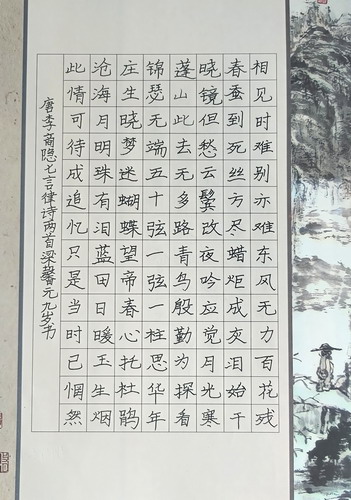 相见时难别亦难东风无力百花残
春蚕到死丝方尽蜡炬成灰泪始干
晓镜但愁云鬓改夜吟应觉月光寒
蓬山此去无多路青鸟殷勤为探看
锦瑟无端五十弦一弦一柱思华年
庄生晓梦迷蝴蝶望帝春心托杜鹃
沧海月明珠有泪蓝田日暖玉生烟
此情可待成追忆只是当时已惘然
唐李商隐七言律诗两首梁馨元九岁书